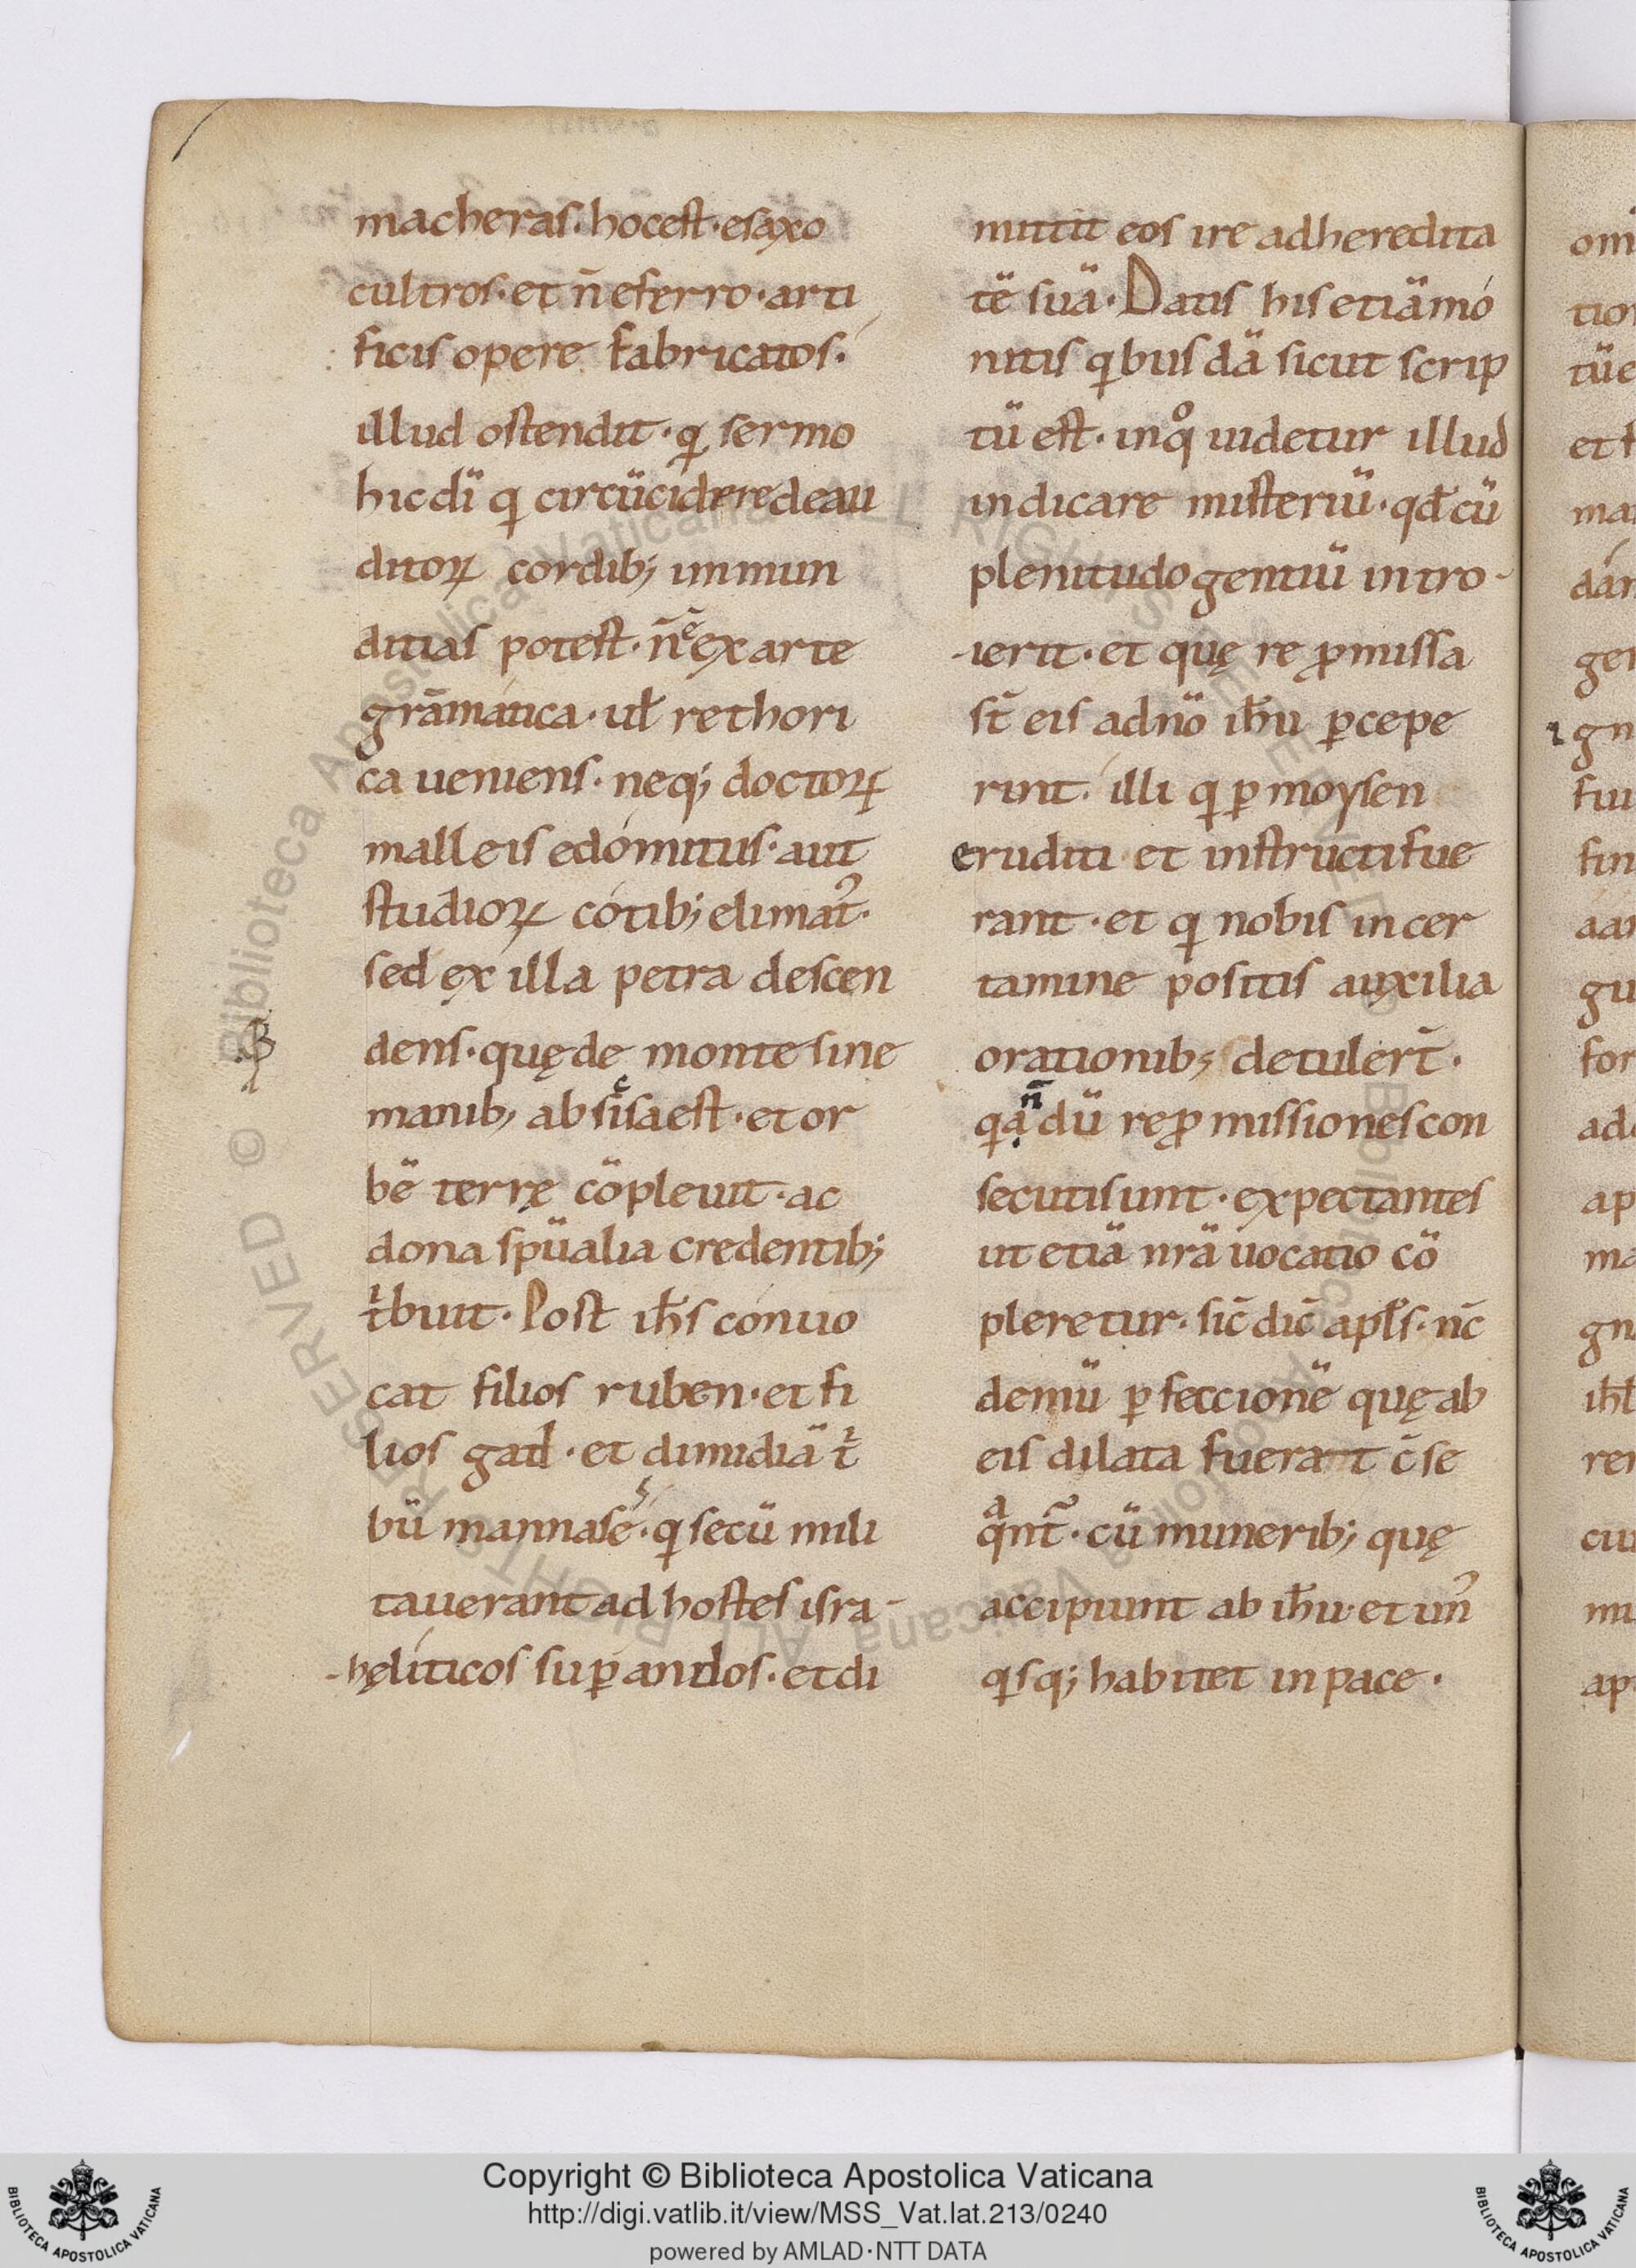 macheras. hocest· esaxo
cultros· et n̄ eferro· arti
ficis opere fabricatos.
illud ostendit· q sermo
hic dī q circūcidere deau
ditoꝝ cordib; immun
ditias potest· n̄ ē ex arte
grāmatica· ul̄ rethori
ca ueniens· neq; doctoꝝ
malleis edomitus· aut
studioꝝ cotib; elimat᷒·
sed ex illa petra descen
dens· quę de monte sine
manib; abscisa est· et or
bē terrę cōpleuit· ac
dona spūalia credentib;
tͥbuit· Post ih̄s conuo
cat filios ruben· et fi
lios gad· et dimidiā tͥ
bū mannase· q secū mili
tauerant ad hostes isra-
-hęliticos suꝑandos· et di
mittit eos ire adheredita
tē suā· Datis his etiā mo
nitis qbusdā sicut scrip
tū est· inqͦ uidetur illud
indicare misteriū· qd̄ cū
plenitudo gentiū intro-
-ierit· et quę re ꝓmissa
st̄ eis adnō ih̄u ꝑcepe
rint. illi q ꝑ moysen
eruditi et instructi fue
rant· et q nobis in cer
tamine positis auxilia
orationib; detuler̄t·
qa n̄dū reꝓmissiones con
secuti sunt· expectantes
ut etiā nrā uocatio cō
pleretur· sic̄ dic̄ apl̄s· nc̄
demū ꝑfeccionē quę ab
eis dilata fuerant c̄se
qͣnt᷒· cū munerib; quę
accipiunt ab ih̄u· et un᷒
qsq; habitet in pace·
Copyright © Biblioteca Apostolica Vaticana
http://digi.vatlib.it/view/MSS_Vat.lat.213/0240
powered by AMLAD·NTT DATA
BIBLIOTECA APOSTOLICA VATICANA
BIBLIOTECA APOSTOLICA VATICANA